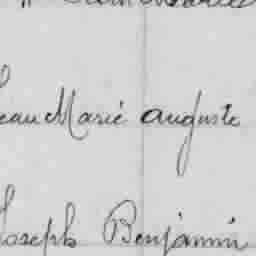 Jean Marie Auguste
Joseph Benjamin